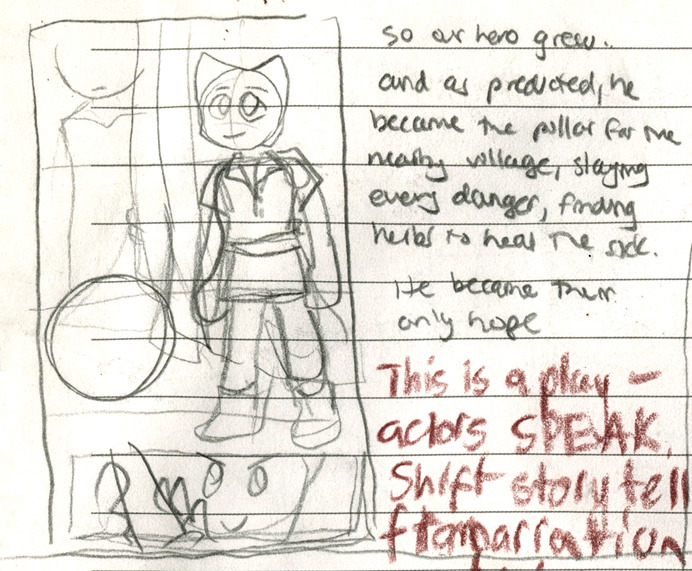 So our hero grew..
and as predicted, he
became the pillar for the
nearby village, slaying
every danger, finding
herbs to heal the sick.
He became their
only hope
This is a play –
actors SPEAK.
Shift story tell
f narration